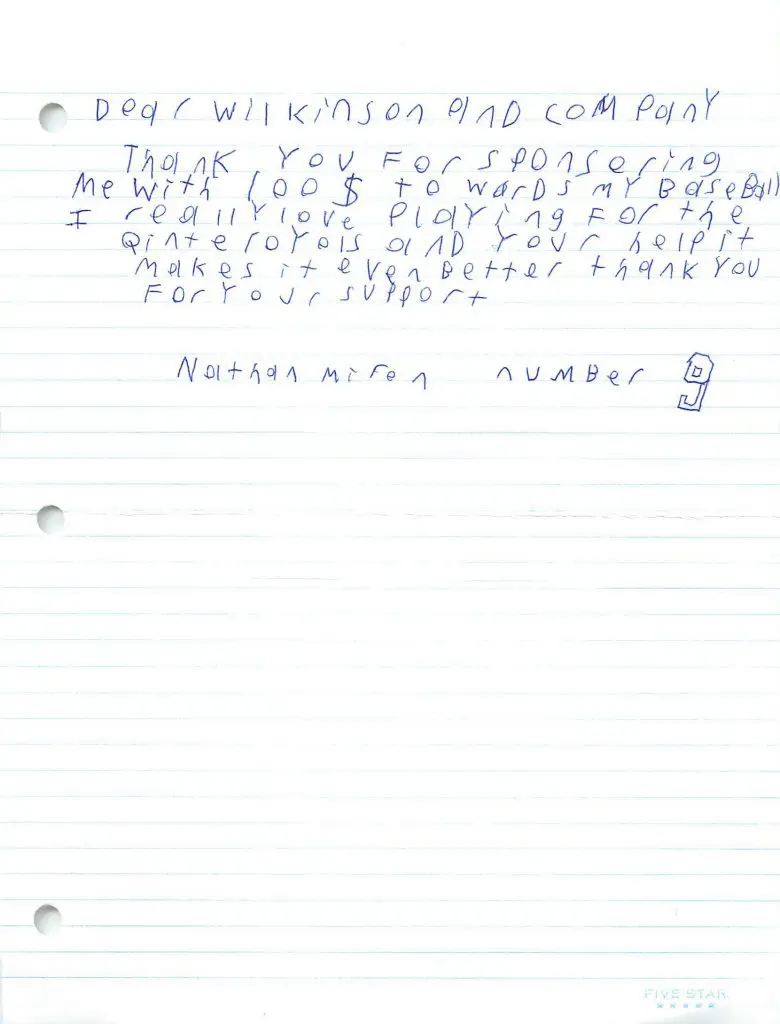 Dear Wilkinson and company
Thank you for sponsering
me with 100$ to wards my BaseBall
I really love playing for the
Qinte royols and your help it
makes it even better thank you
for your support
Nathan miren number 9
FIVE STAR